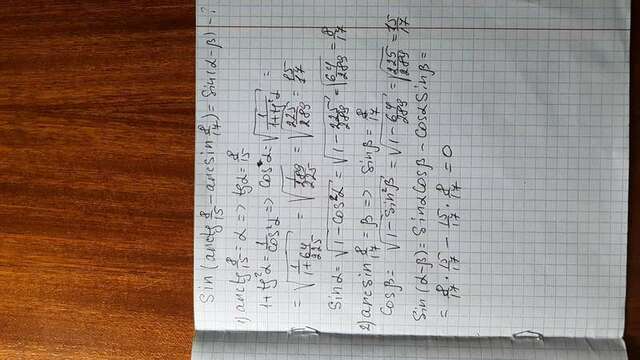 Sin (arctg 8/15 - arcsin 8/17) = Sin(α-β) - ?
1) arctg 8/15 = α => tgα = 8/15
1+tg²α = 1/cos²α => cosα = √(1/(1+tg²α)) =
= √(1/(1+64/225)) = √(1/(289/225)) = √(225/289) = 15/17
Sinα = √(1-cos²α) = √(1-225/289) = √(64/289) = 8/17
2) arcsin 8/17 = β => Sinβ = 8/17
Cosβ = √(1-Sin²β) = √(1-64/289) = √(225/289) = 15/17
Sin (α-β) = Sinα Cosβ - Cosα Sinβ =
= 8/17 · 15/17 - 15/17 · 8/17 = 0